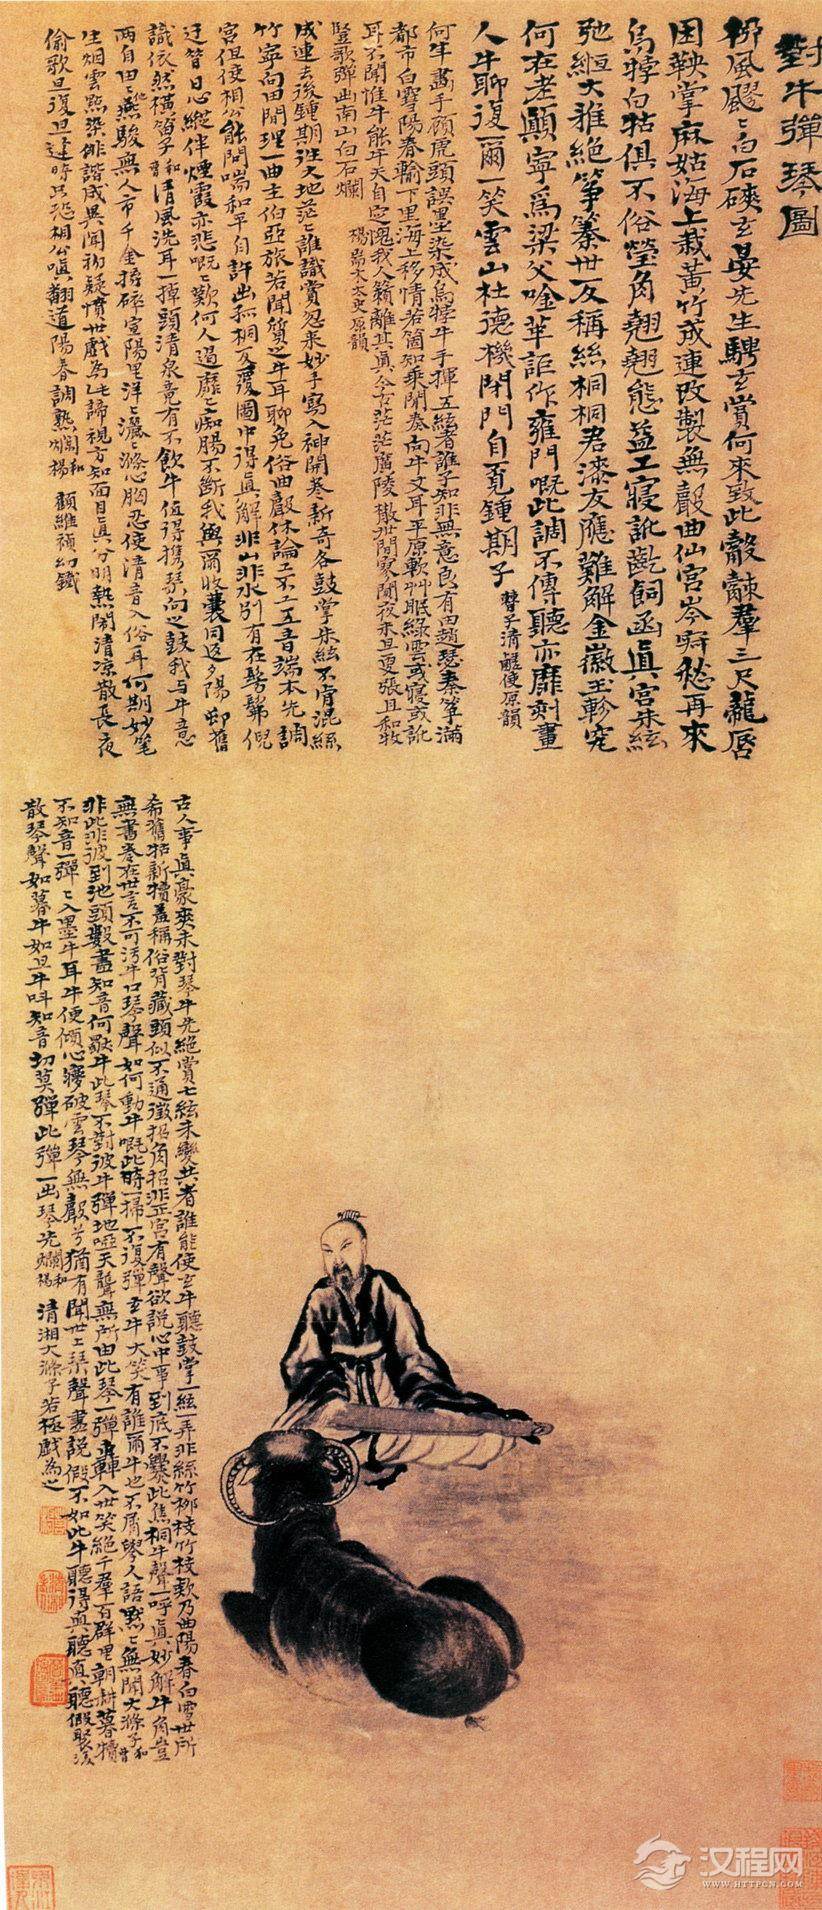 對牛彈琴圖
柳風颼颼白石磜玄晏先生騁玄賞何來致此觳觫羣三尺龍唇
困鞅掌麻姑海上栽黃竹成連改製無聲曲仙宮岑時愁再來
烏犉白牯俱不俗瑩角翹翹態益工寢訛齕飼函真宮朱絃
弛絙大雅絕箏篆世反稱絲桐桐君漆友應難解金徽玉軫究
何在老顛寧為梁父唫莘詎作雍門慨此調不傳聽亦靡剡畫
人牛聊復爾一笑雲山杜德機閉門自覓鍾期子 子清鹺使原韻
何年畫手顧虎頭誤墨染成烏犉牛手揮五絃者誰子知非無意良有由趙瑟秦箏滿
都市白雪陽春翻下里海上移情若箇知乘閒奏向牛丈耳平原軟艸眠綠雲或寢或訛
耳不聞惟牛能牛天自定愧我人籟離其真今古茫茫廣陵散世間寥闃夜未旦戛張且和牧
豎歌彈出南山白石爛 楊耑木太史原韻
成連去後鍾期往大地茫茫誰識賞忽來妙手寫入神開卷新奇各鼓掌朱絃不肯混絲
竹寧向田間理一曲主伯亞旅若聞質之牛耳聊免俗曲聲休論工不工五音端本先調
宮但使相公能問喘和平自許出孤桐反覆圖中得真解非山非水別有在髣髴倪
迂昝日心縱伴煙霞亦悲慨歎何人過靡靡痴腸不斷我與爾收囊同返夕陽邨舊
識依然橫笛子 和 清風洗耳一掉頭清泉竟有不飲牛值得攜琴向之鼓我與牛意
兩自由燕駿無人市千金摔碎宣陽里洋洋灑灑滌心胸忍使清音入俗耳何期妙笔
生烟雲點染俳諧成異聞初疑憤世戲為此諦視方知面目真分明熱鬧清涼散長夜
偷歌旦復旦逢時只恐相公嗔翻道陽春調熟爛 和楊韻 顧維禎幻鐵
古人事真豪爽未對琴牛先絕賞七絃未變共者誰能使玄牛聽鼓掌一絃一弄非絲竹柳枝竹枝欸乃曲陽春白雪世所
希舊牯新犢羞稱俗背藏頭似不通徵招角招非正宮有聲欲說心中事到底不爨此焦桐牛聲一呼真妙解牛角豈
無書卷在世言不可污牛口琴聲如何動牛慨此時一掃不復彈玄牛大笑有誰爾牛也不屑學人語默默無聞大滌子 和曹
非此非彼到池頭數盡知音何獨牛此琴不對彼牛彈地啞天聾無所由此琴一彈轟入世笑絕千羣百群里朝耕暮犢
不知音一彈彈入墨牛耳牛便傾心夢破雲琴無聲兮猶有聞世上琴聲盡說假不如此牛聽得真聽真聽假聚復
散琴聲如暮牛如旦牛叫知音切莫彈此彈一出琴先爛 和楊韻 清湘大滌子若極戲為之
汉程网
WWW.HTTPCN.COM